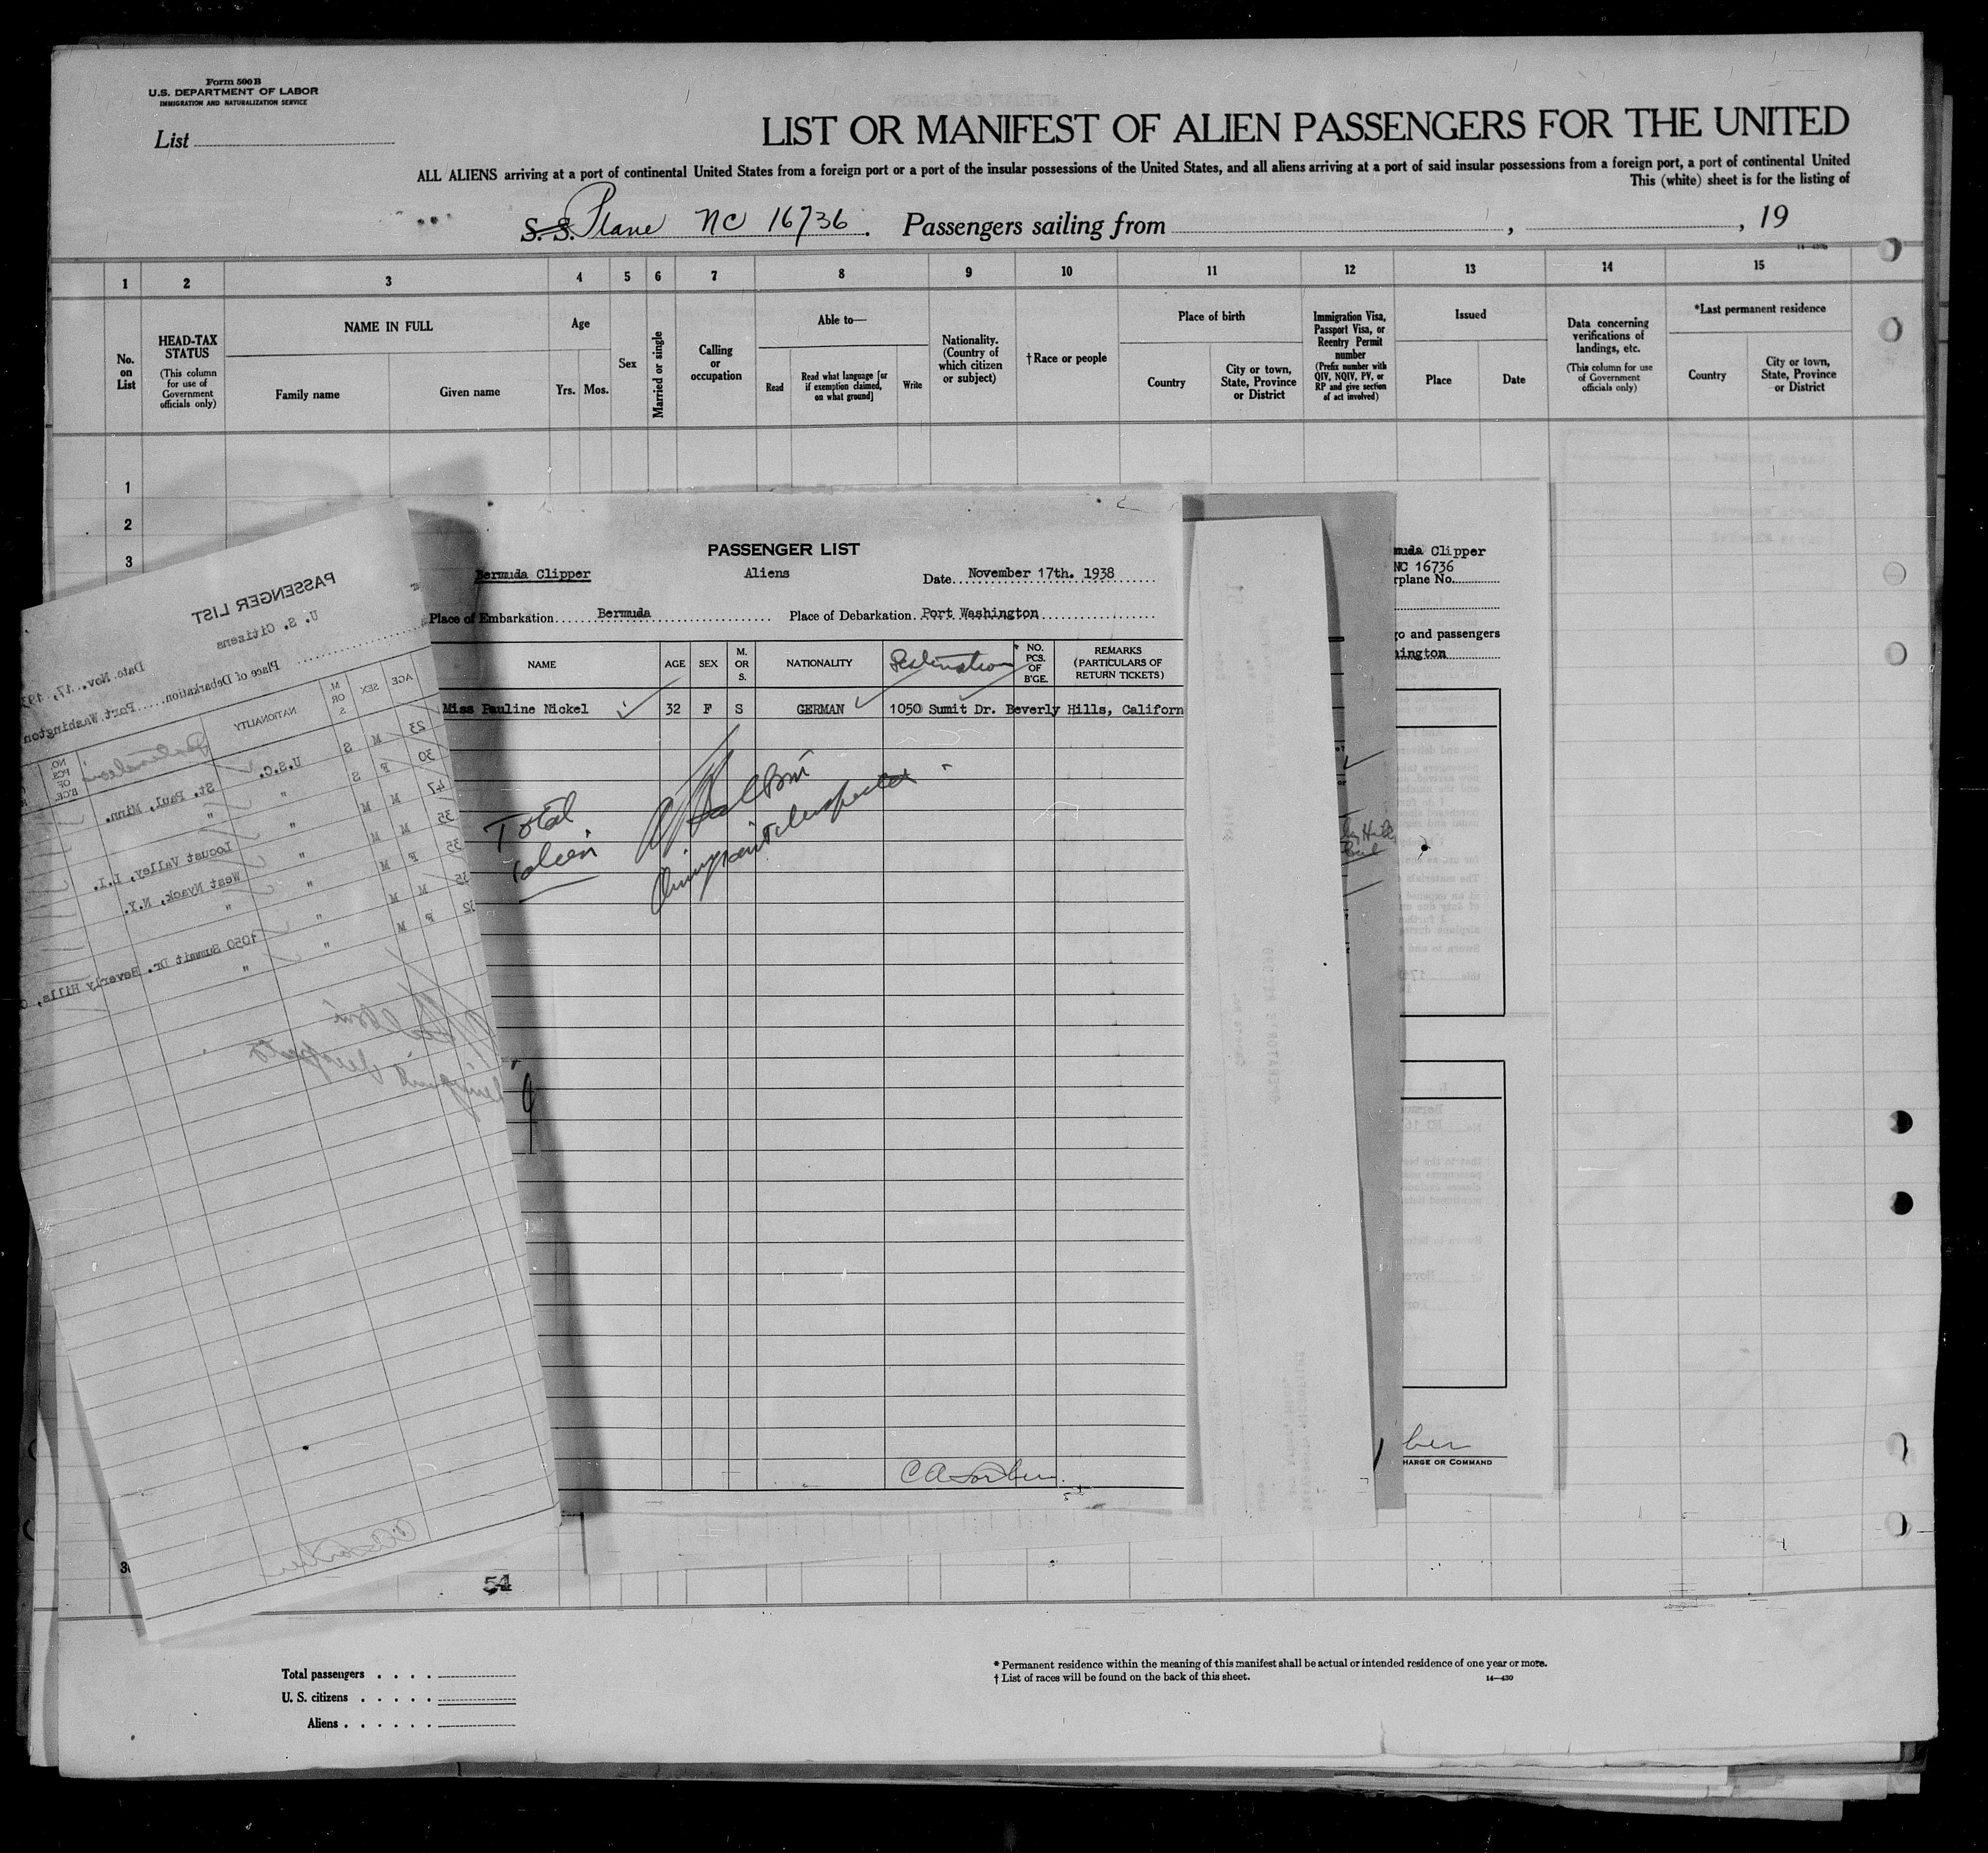 Form 500 B
U.S. DEPARTMENT OF LABOR
IMMIGRATION AND NATURALIZATION SERVICE
List
LIST OR MANIFEST OF ALIEN PASSENGERS FOR THE UNITED
ALL ALIENS arriving at a port of continental United States from a foreign port or a port of the insular possessions of the United States, and all aliens arriving at a port of said insular possessions from a foreign port, a port of continental United
This (white) sheet is for the listing of
S. S. Plane NC 16736. Passengers sailing from , , 19
1 2 3 4 5 6 7 8 9 10 11 12 13 14 15
No. on List
HEAD-TAX STATUS
(This column for use of Government officials only)
NAME IN FULL
Family name Given name
Age
Yrs. Mos.
Sex
Married or single
Calling or occupation
Able to—
Read
Read what language [or if exemption claimed, on what ground]
Write
Nationality. (Country of which citizen or subject)
†Race or people
Place of birth
Country
City or town, State, Province or District
Immigration Visa, Passport Visa, or Reentry Permit number
(Prefix number with QIV, NQIV, PV, or RP and give section of act involved)
Issued
Place Date
Data concerning verifications of landings, etc.
(This column for use of Government officials only)
*Last permanent residence
Country
City or town, State, Province or District
1
2
3
PASSENGER LIST
U. S. Citizens
Date Nov. 17,
Place of Debarkation Port Washington
AGE SEX M OR S NATIONALITY Destination NO. PCS. OF B'GE.
23 M S U.S.C. St. Paul, Minn.
30 F S " "
47 M M " Locust Valley, L.I.
35 M M " West Nyack, N.Y.
35 F M " "
35 M M " 1050 Summit Dr. Beverly Hills,
32 F M " "
PASSENGER LIST
Bermuda Clipper Aliens Date November 17th. 1938
Place of Embarkation Bermuda Place of Debarkation Port Washington
NAME AGE SEX M. OR S. NATIONALITY Destination NO. PCS. OF B'GE. REMARKS (PARTICULARS OF RETURN TICKETS)
Miss Pauline Nickel 32 F S GERMAN 1050 Sumit Dr. Beverly Hills, Californ
Total
1 alien
Immigrant Inspector
muda Clipper
NC 16736
rplane No.
go and passengers
hington
HARGE OR COMMAND
54
Total passengers
U. S. citizens
Aliens
* Permanent residence within the meaning of this manifest shall be actual or intended residence of one year or more.
† List of races will be found on the back of this sheet. 14—430